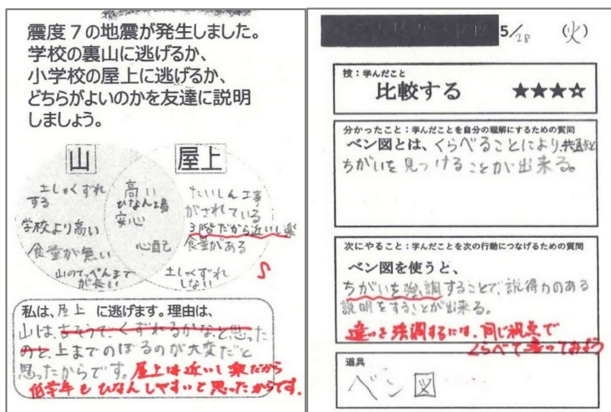 震度7の地震が発生しました。
学校の裏山に逃げるか、
小学校の屋上に逃げるか、
どちらがよいのかを友達に説明
しましょう。
山
屋上
土しゃくずれ
する
学校より高い
食量が無い
山のてっぺんまで
が長い
高い
ひなん場
安心
たいしん工事
がされている
3階だから近いし楽
食量がある
土しゃくずれ
しない
S
私は、屋上 に逃げます。理由は、
山は、
上までのぼるのが大変だと
思ったからです。屋上は近いし楽だから
低学年もひなんしやすいと思ったからです。
5/28 (火)
技:学んだこと
比較する ★★★☆
分かったこと:学んだことを自分の理解にするための質問
ベン図とは、くらべることにより、共通点と
ちがいを見つけることが出来る。
次にやること:学んだことを次の行動につなげるための質問
ベン図を使うと、
ちがいを強調することで、説得力のある
説明をすることが出来る。
違いを強調するには、同じ視点で
くらべて違ってみよう
道具
ベン図